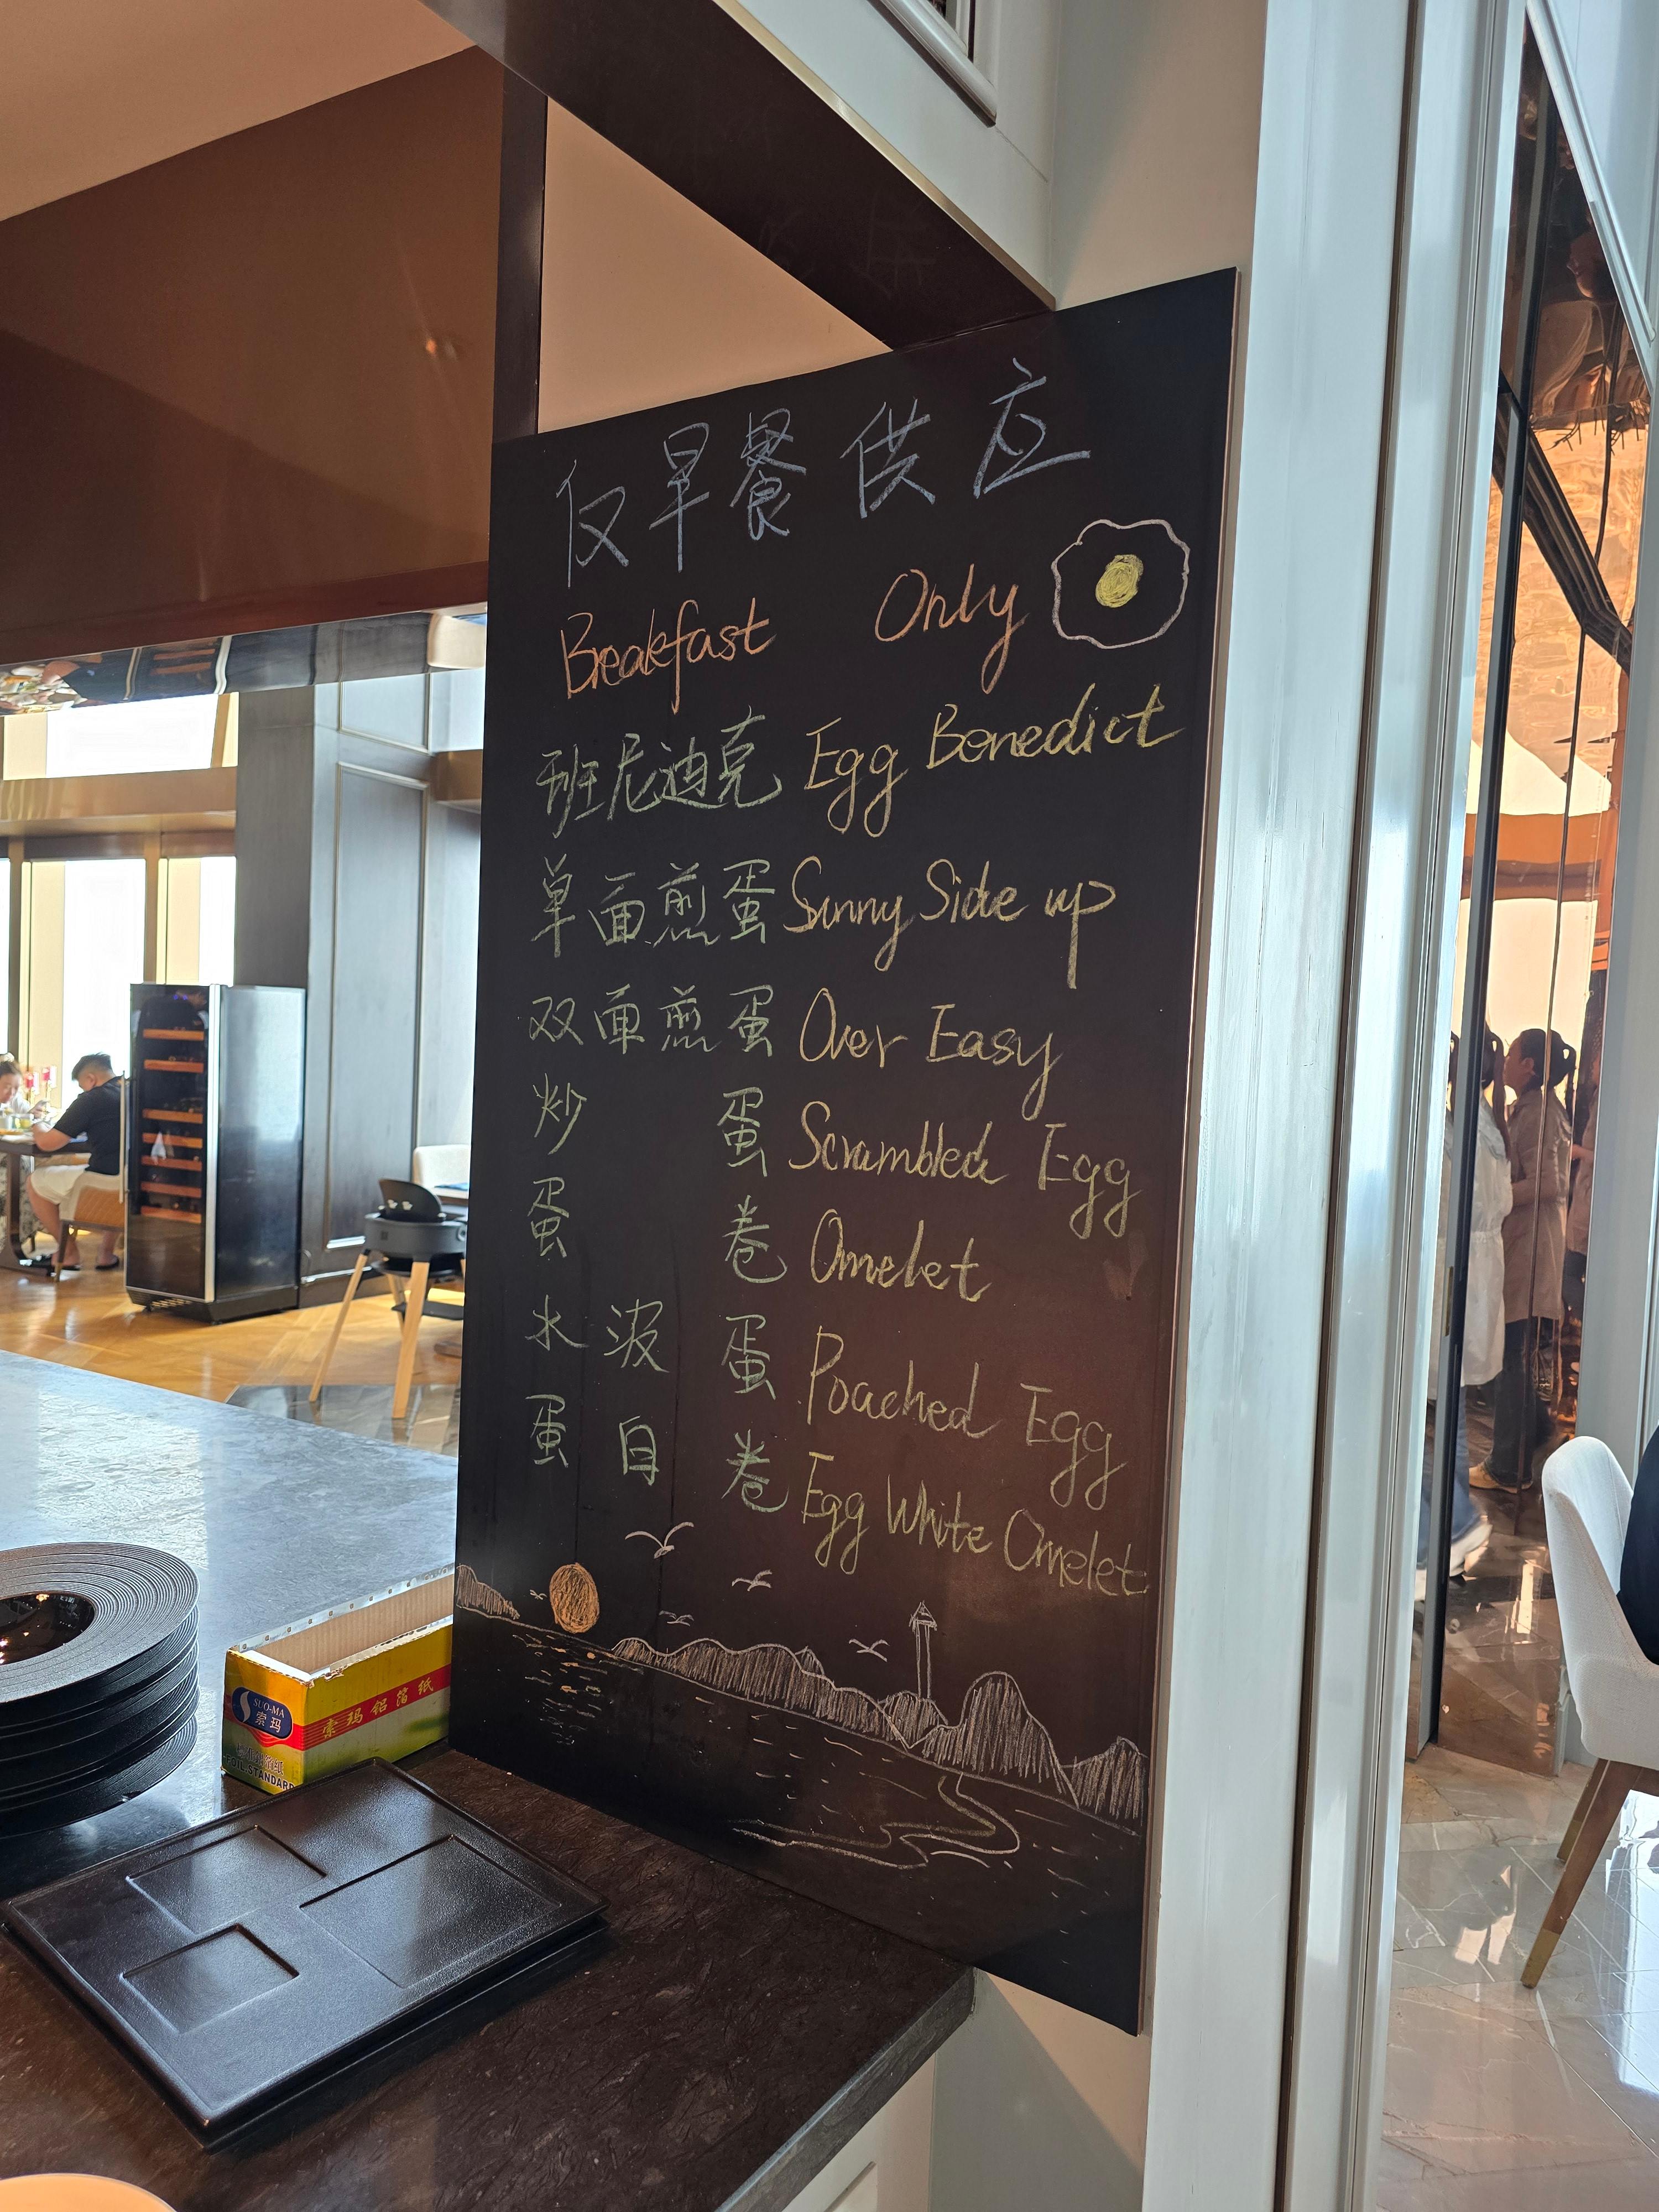 仅早餐供应
Breakfast Only
班尼迪克 Egg Benedict
单面煎蛋 Sunny Side up
双面煎蛋 Over Easy
炒蛋 Scrambled Egg
蛋卷 Omelet
水波蛋 Poached Egg
蛋白卷 Egg White Omelet
SUO-MA
索玛
索玛铝箔纸
FOIL STANDARD